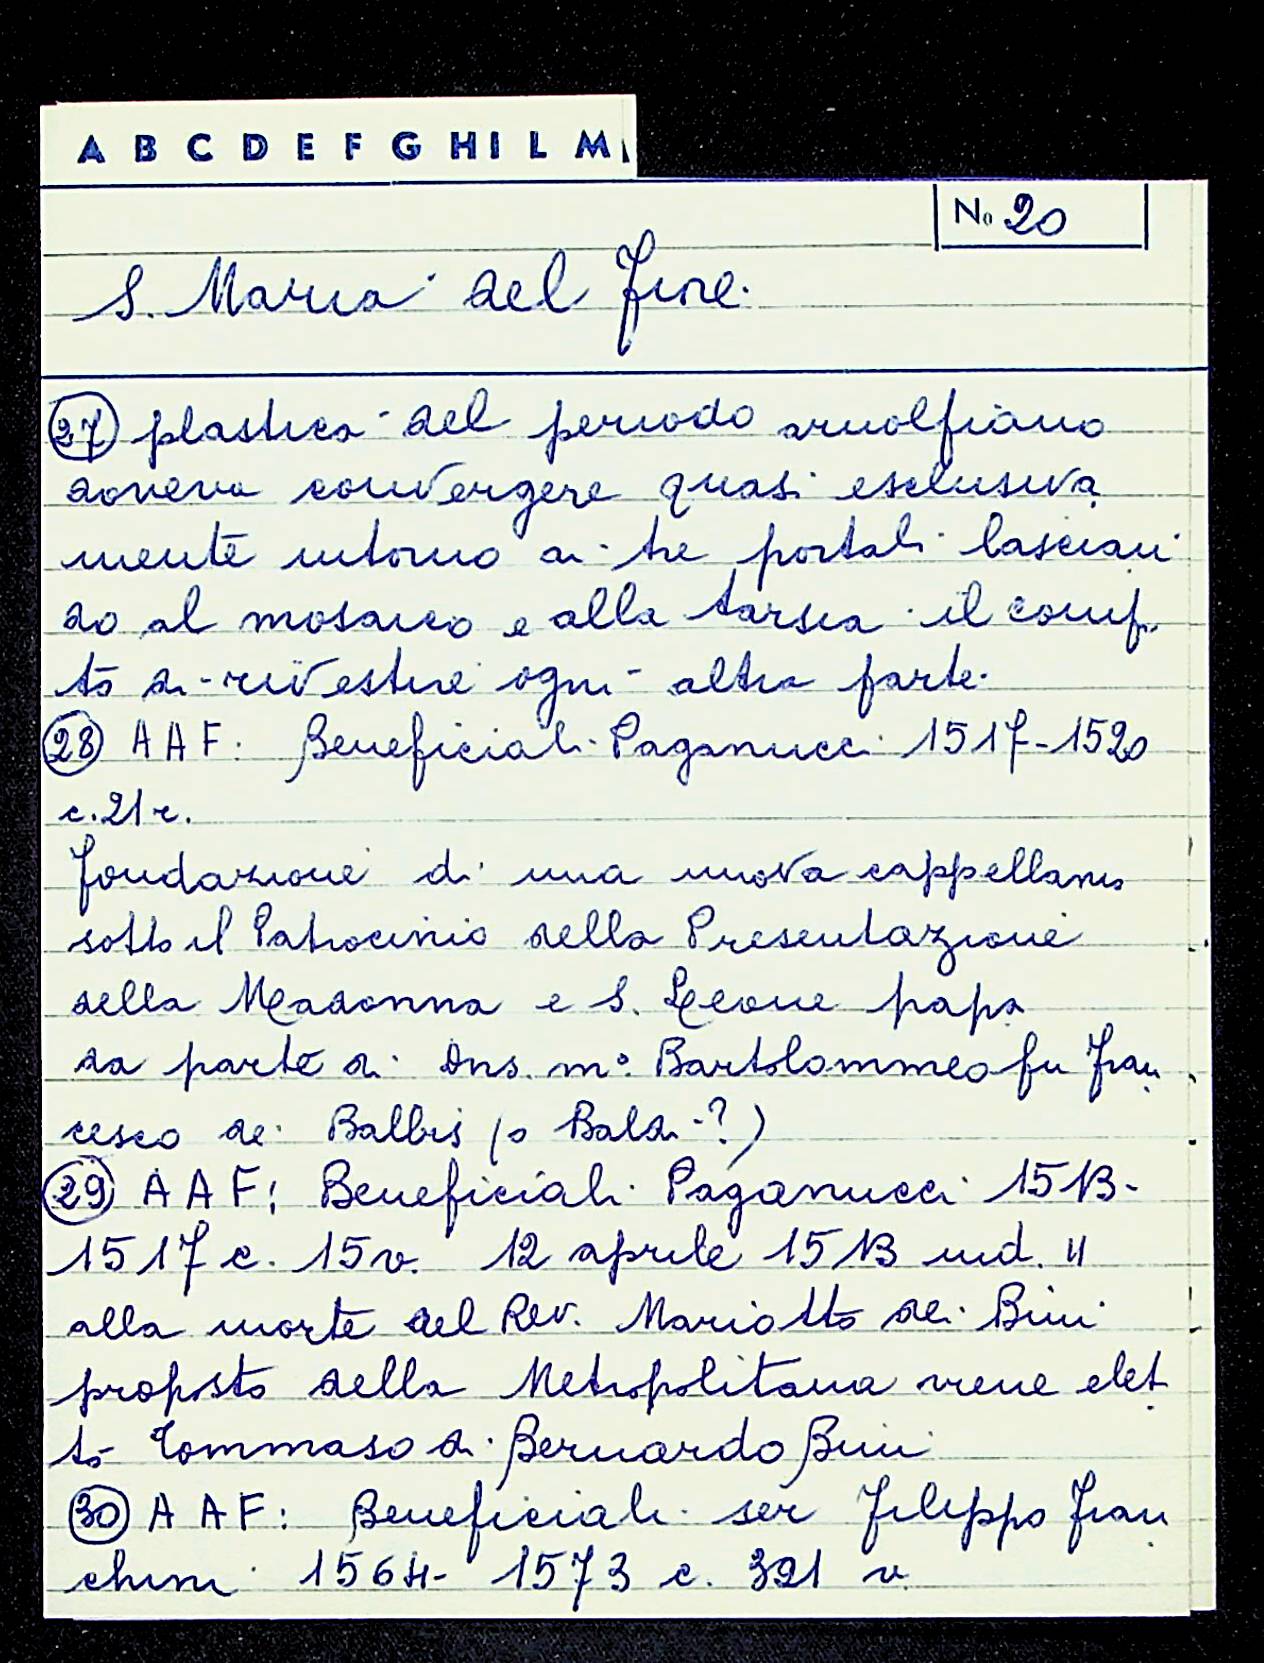 A B C D E F G H I L M
No 20
S. Maria del Fiore.
27 plastica del periodo arnolfiano
doveva convergere quasi esclusiva
mente intorno ai tre portali lascian
do al mosaico e alla tarsia il comp.
to di rivestire ogni altra parte.
28 AAF: Beneficiali Paganucci 1517-1520
c. 21 r.
fondazione di una nuova cappellania
sotto il Patrocinio della Presentazione
della Madonna e S. Leone papa
da parte di Dns. m° Bartolommeo fu Fran
cesco de' Balbis (o Baldi ?)
29 AAF: Beneficiali Paganucci 1513-
1517 c. 15v. 12 aprile 1513 ind. II
alla morte del Rev. Mariotto de' Bini
proposto della Metropolitana viene elet
to Tommaso di Bernardo Bini
30 AAF: Beneficiali ser Filippo Fran
chini 1564-1573 c. 321 v.